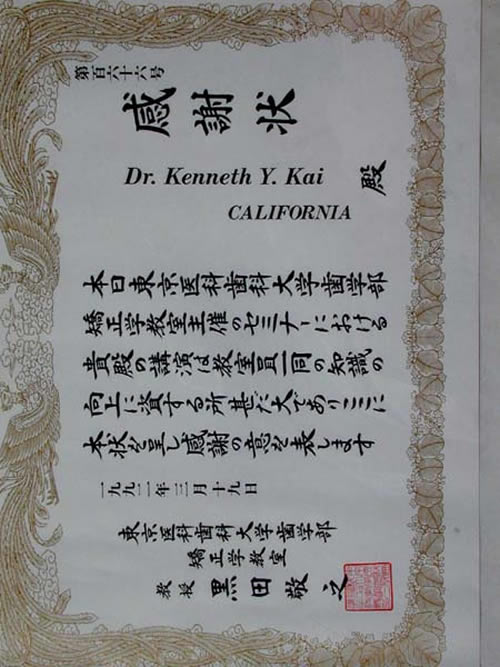 第百六十六号
感謝状
Dr. Kenneth Y. Kai
CALIFORNIA
殿
本日東京医科歯科大学歯学部
矯正学教室主催のセミナーにおける
貴殿の講演は教室員一同の知識の
向上に資する所甚だ大でありここに
本状を呈し感謝の意を表します
一九九二年三月十九日
東京医科歯科大学歯学部
矯正学教室
教授 黒田敬之